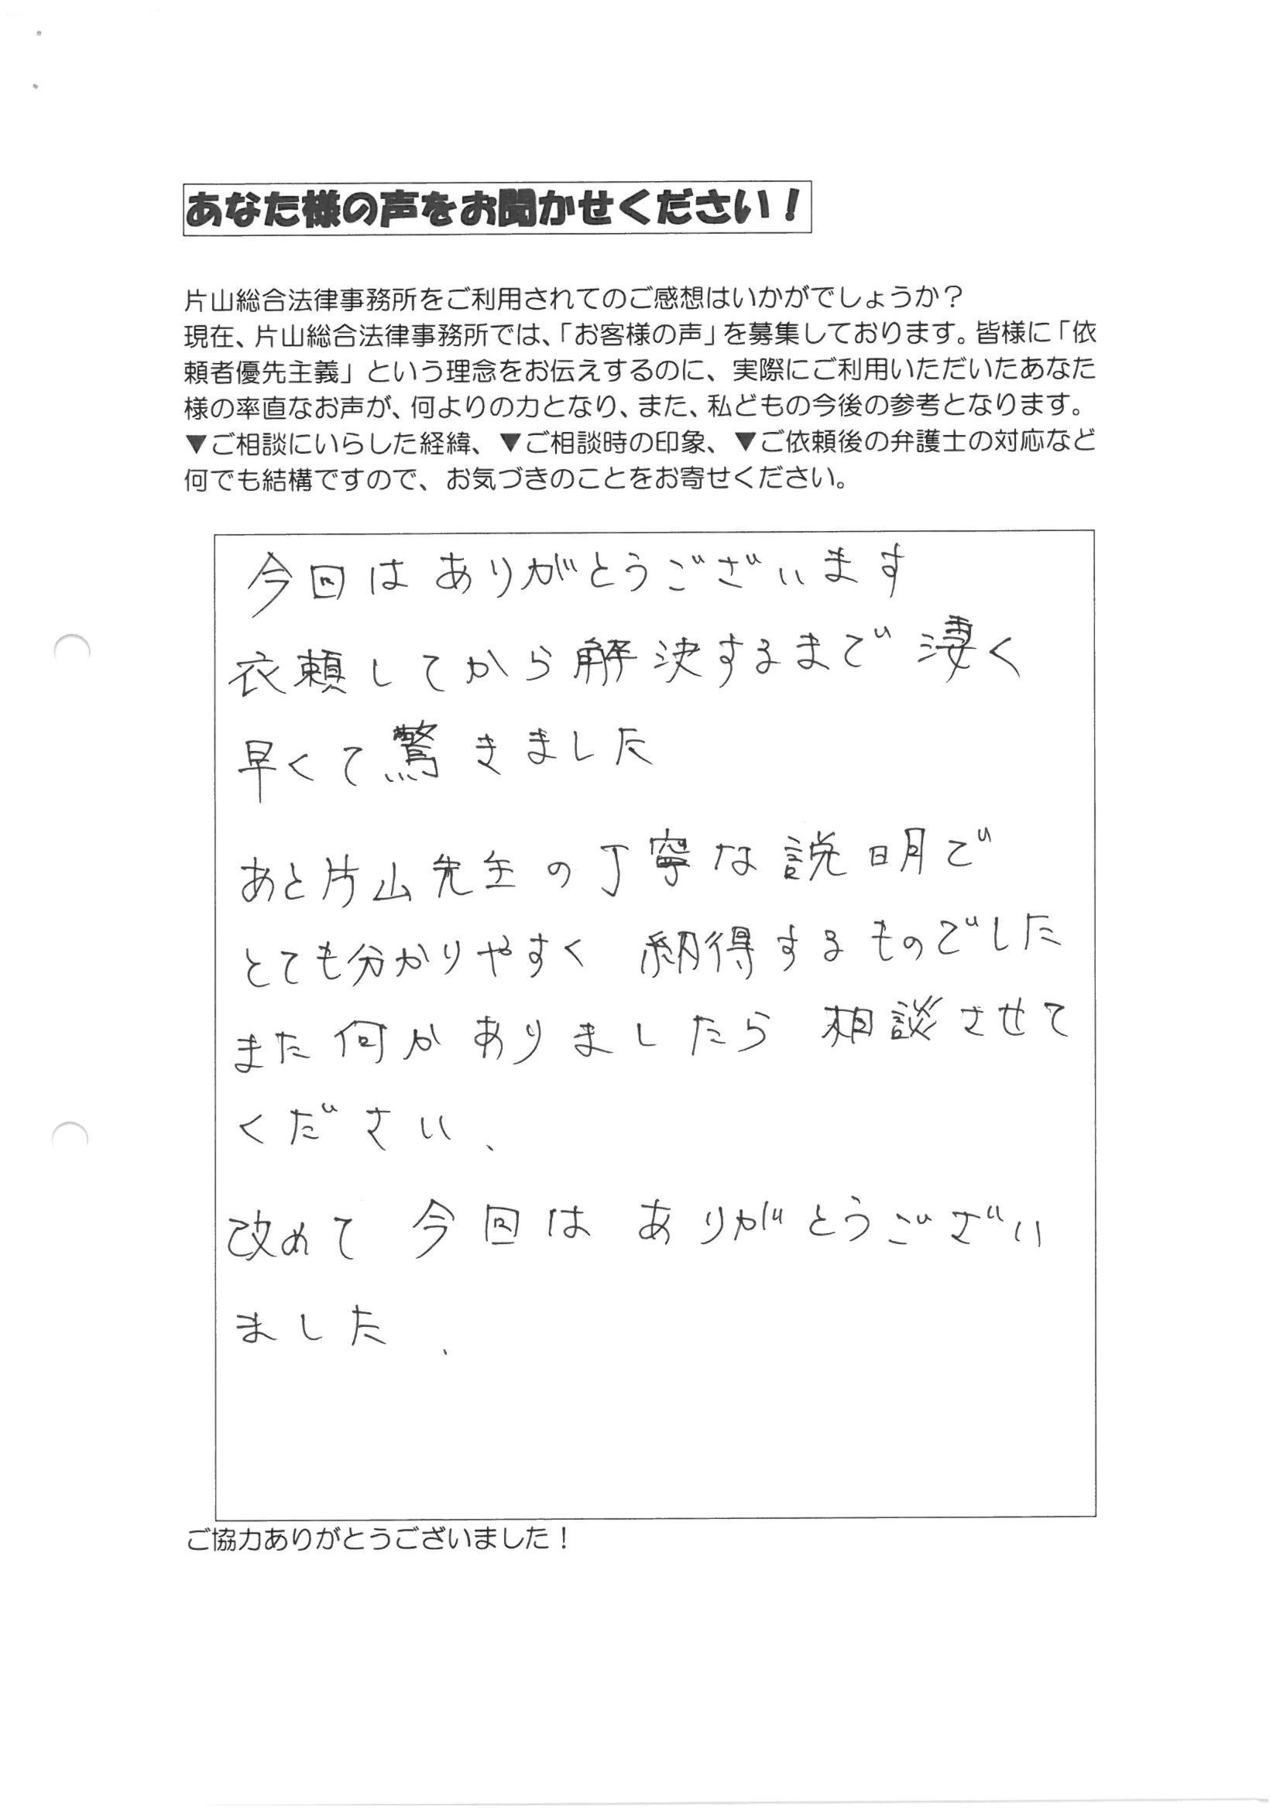 あなた様の声をお聞かせください！
片山総合法律事務所をご利用されてのご感想はいかがでしょうか？
現在、片山総合法律事務所では、「お客様の声」を募集しております。皆様に「依
頼者優先主義」という理念をお伝えするのに、実際にご利用いただいたあなた
様の率直なお声が、何よりの力となり、また、私どもの今後の参考となります。
▼ご相談にいらした経緯、▼ご相談時の印象、▼ご依頼後の弁護士の対応など
何でも結構ですので、お気づきのことをお寄せください。
今回はありがとうございます
衣頼してから解決するまで凄く
早くて驚きました
あと片山先生の丁寧な説明で
とても分かりやすく 納得するものでした
また何かありましたら 相談させて
ください、
改めて 今回は ありがとうござい
ました、
ご協力ありがとうございました！